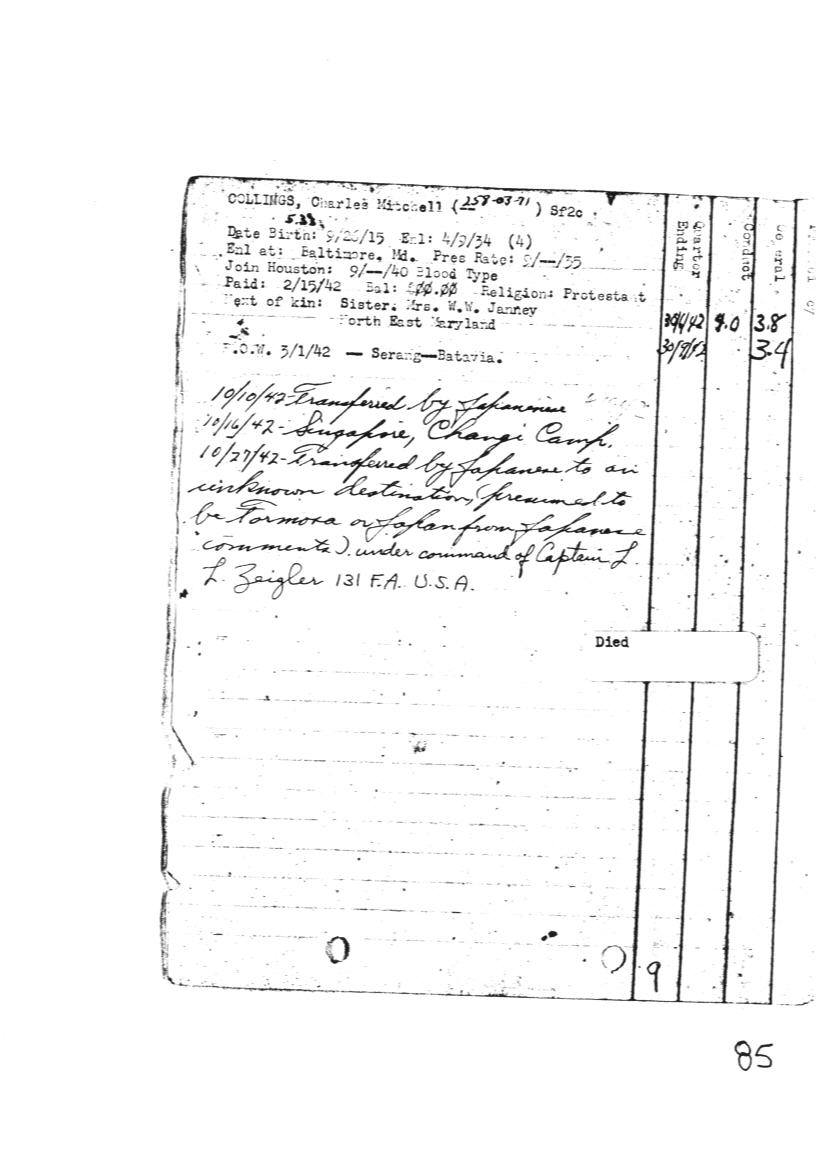 COLLINGS, Charles Mitchell (258-03-71) Sf2c
5.38
Date Birth: 9/26/15 Enl: 4/9/34 (4)
Enl at: Baltimore, Md. Pres Rate: 9/--/35
Join Houston: 9/--/40 Blood Type
Paid: 2/15/42 Bal: 00.00 Religion: Protestant
Next of kin: Sister. Mrs. W.W. Janney
North East Maryland
P.O.W. 3/1/42 — Serang—Batavia.
10/10/42-Transferred by Japanenese
10/16/42-Singapore, Changi Camp.
10/27/42-Transferred by Japanese to an
unknown destination, (presumed to
be Formosa or Japan from Japanese
comments). under command of Captain L
L. Zeigler 131 F.A. U.S.A.
Quarter
Ending
Conduct
30/4/42 9.0 3.8
3.4
Died
9
85